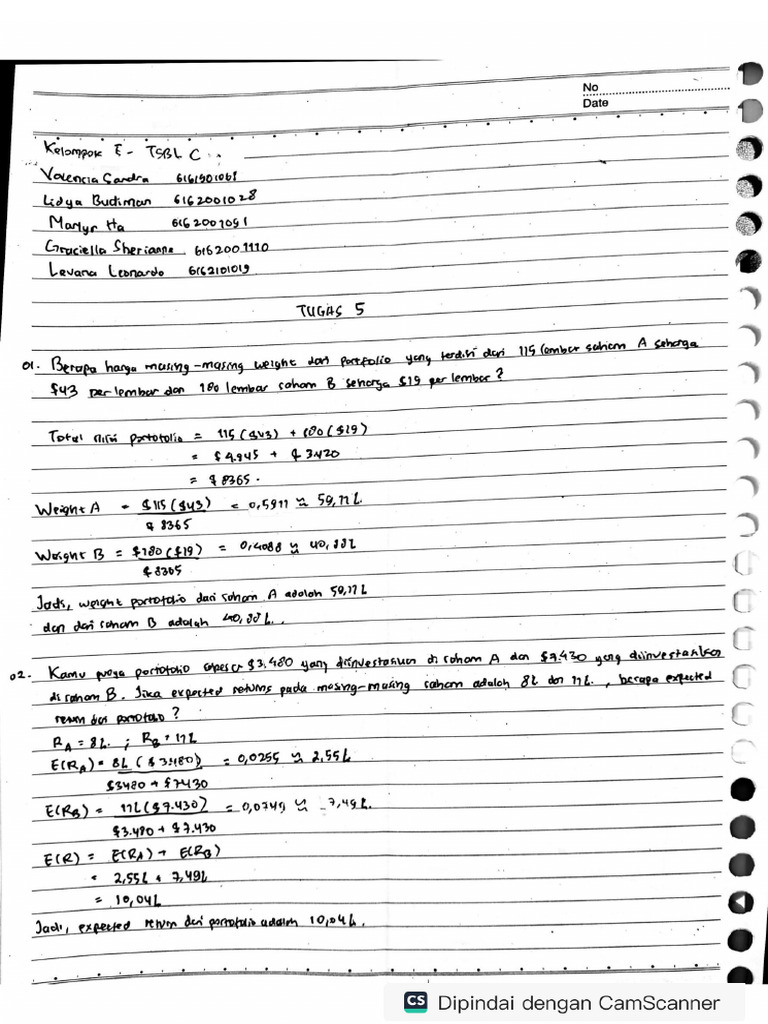 No
Date
Kelompok E - TSBL C
Valencia Sandra 6161901061
Lidya Budiman 6162001028
Martyr Ha 6162001091
Graciella Sherianne 6162001110
Levana Leonardo 6162101019
TUGAS 5
01. Berapa harga masing-masing weight dari portfolio yang terdiri dari 115 lembar saham A seharga
$43 per lembar dan 180 lembar saham B seharga $19 per lembar?
Total nilai portofolio = 115 ($43) + 180 ($19)
= $4.945 + $3.420
= $8365.
Weight A = $115 ($43) = 0,5911 ≈ 59,11%
$8365
Weight B = $180 ($19) = 0,4088 ≈ 40,88%
$8365
Jadi, weight portofolio dari saham A adalah 59,11%
dan dari saham B adalah 40,88%.
02. Kamu punya portofolio sebesar $3.480 yang diinvestasikan di saham A dan $7.430 yang diinvestasikan
di saham B. Jika expected returns pada masing-masing saham adalah 8% dan 11%, berapa expected
return dari portofolio?
RA = 8% ; RB = 11%
E(RA) = 8% ($3.480) = 0,0255 ≈ 2,55%
$3480 + $7430
E(RB) = 11% ($7.430) = 0,0749 ≈ 7,49%.
$3.480 + $7.430
E(R) = E(RA) + E(RB)
= 2,55% + 7,49%
= 10,04%
Jadi, expected return dari portofolio adalah 10,04%.
CS Dipindai dengan CamScanner